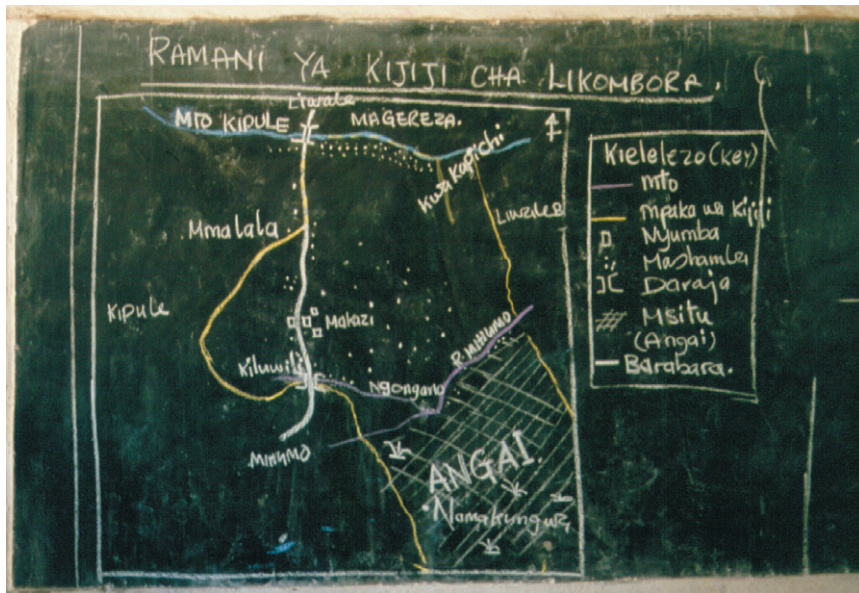 RAMANI YA KIJIJI CHA LIKOMBORA.
Liwale
MTO KIPULE
MAGEREZA.
Kwa Kapichi
Mmalala
Kipule
Makazi
Kiluwili
Ngongano
R. MIHUMO
MIHUMO
ANGAI.
Kielelezo (key)
mto
mpaka wa Kijiji
Nyumba
Mashamba
Daraja
Msitu
(Angai)
Barabara.